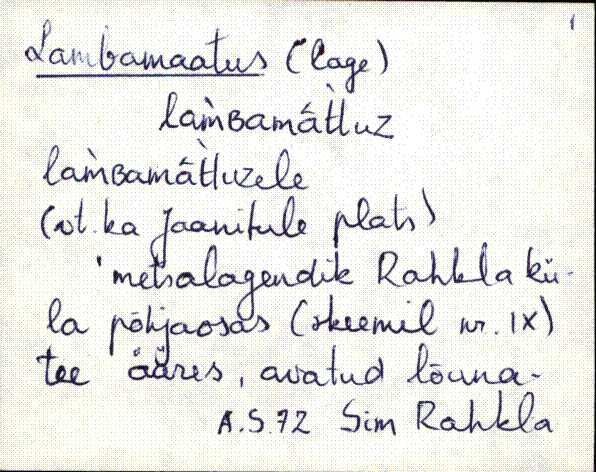 1
Lambamaatus (lage)
lam̀ʙamât̀luz
lam̀ʙamât̀luzele
(vt. ka Jaanitule plats)
'metsalagendik Rahkla kü-
la põhjaosas (skeemil nr. IX)
tee ääres, avatud lõuna-
A.S. 72 Sim Rahkla